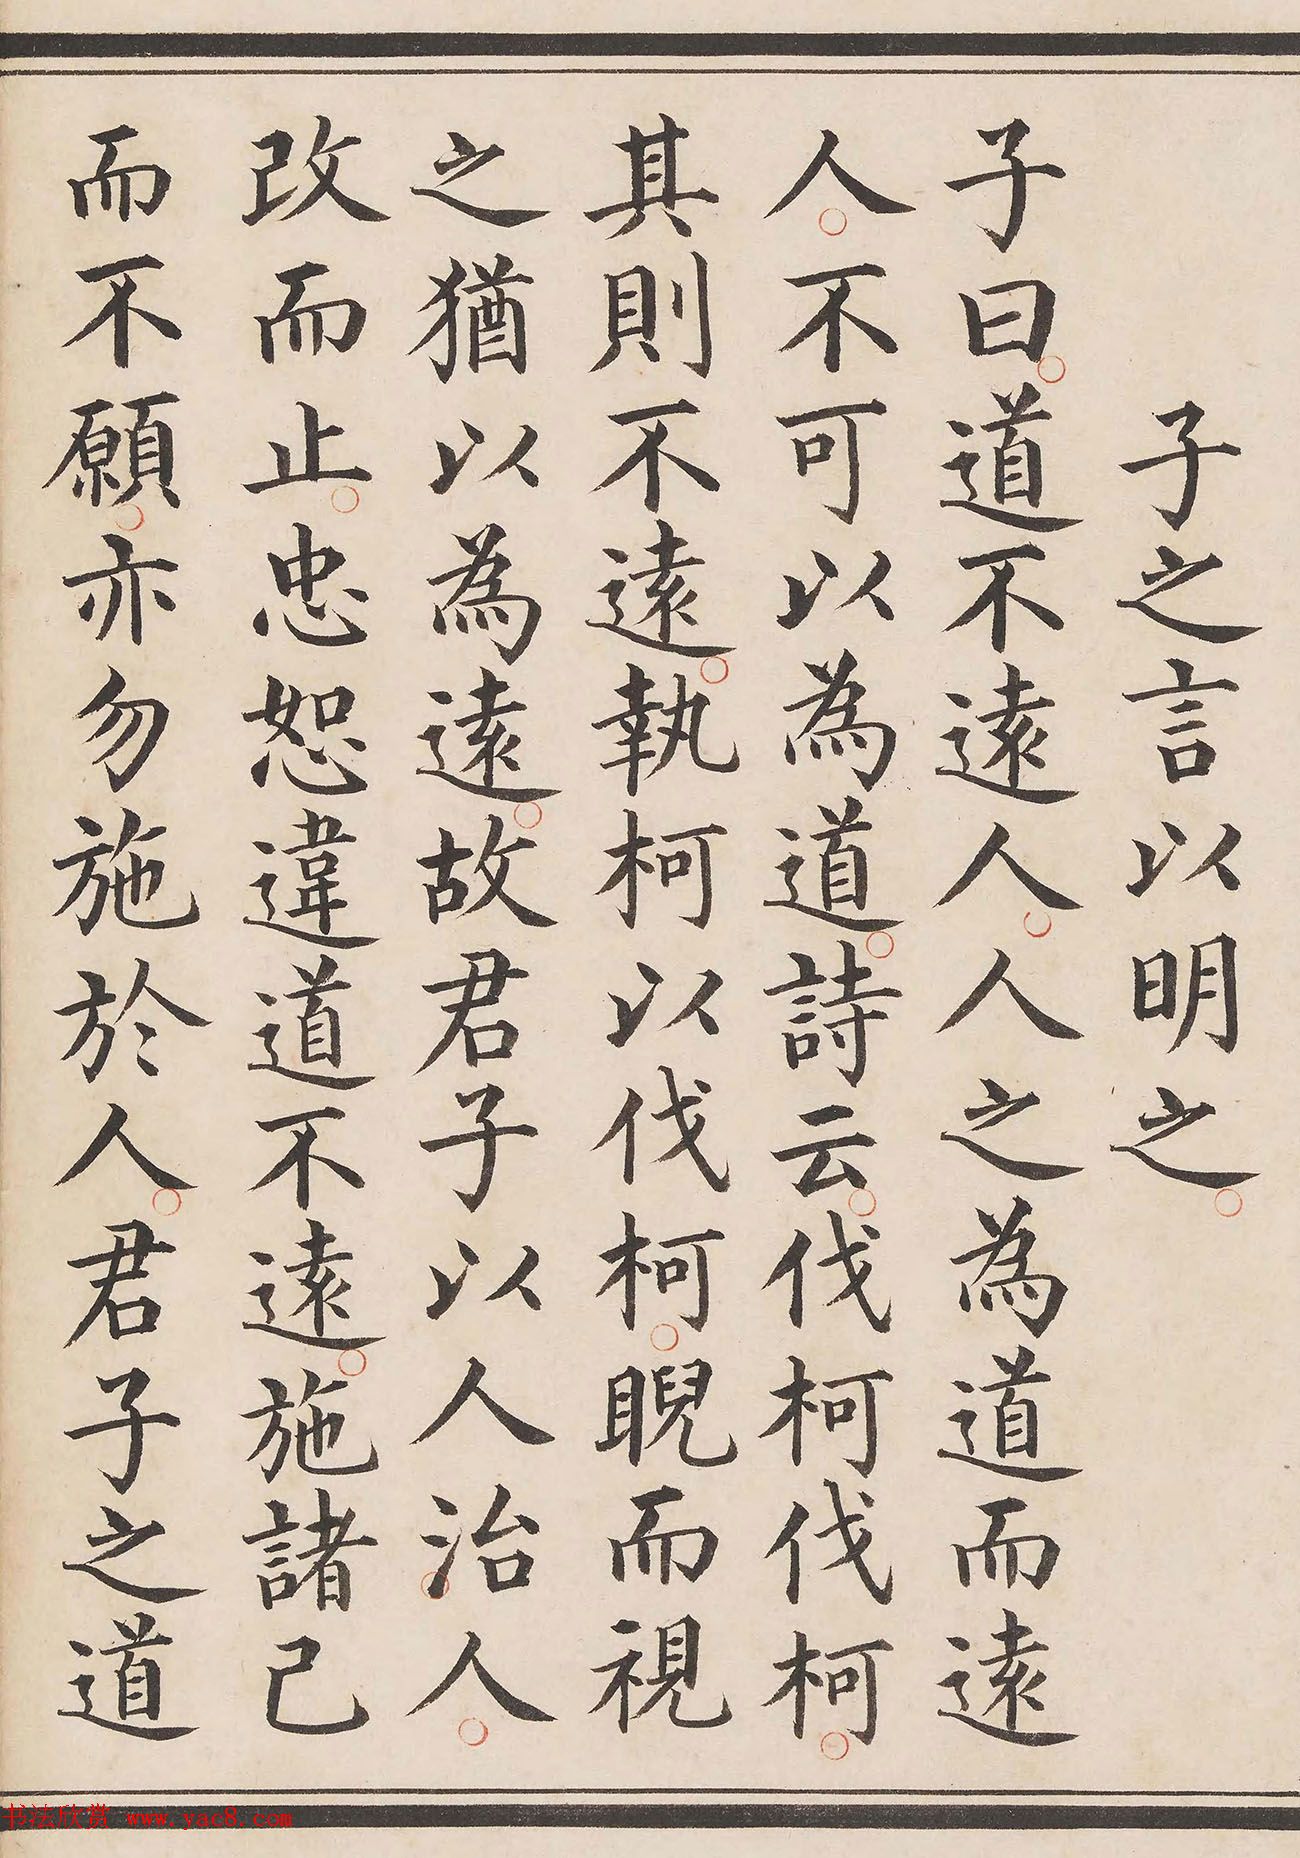 子之言以明之
子曰道不遠人人之為道而遠
人不可以為道詩云伐柯伐柯
其則不遠執柯以伐柯睨而視
之猶以為遠故君子以人治人
改而止忠恕違道不遠施諸己
而不願亦勿施於人君子之道
书法欣赏 www.yac8.com